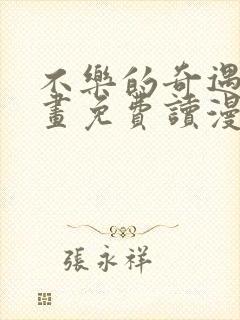 不樂的奇遇
畫免費讀漫
張永祥